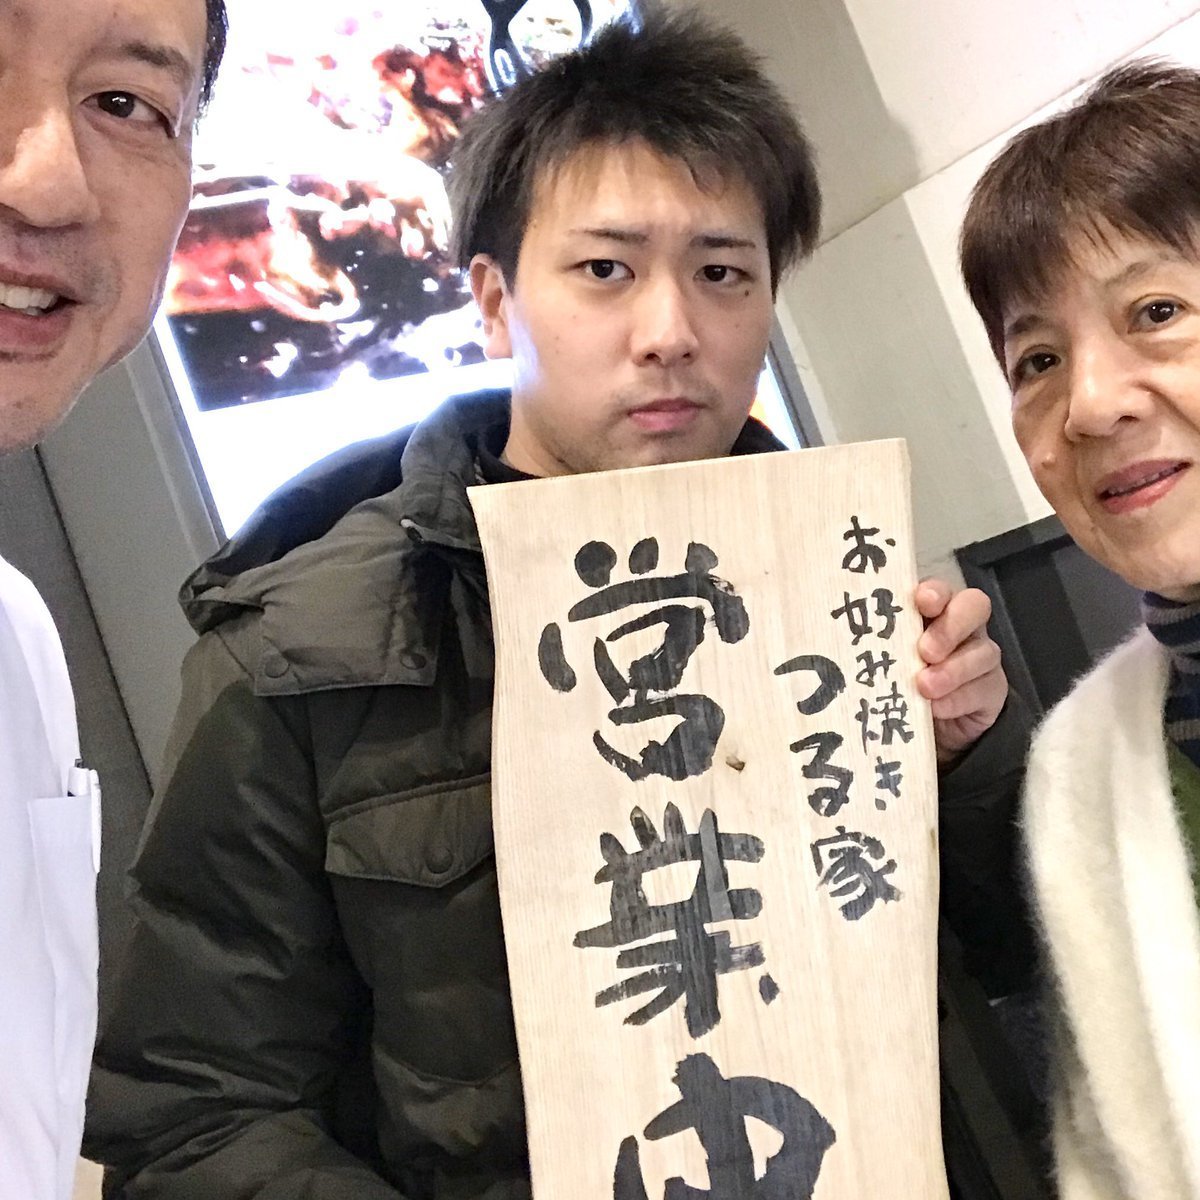 お好み焼き
つる家
営業中